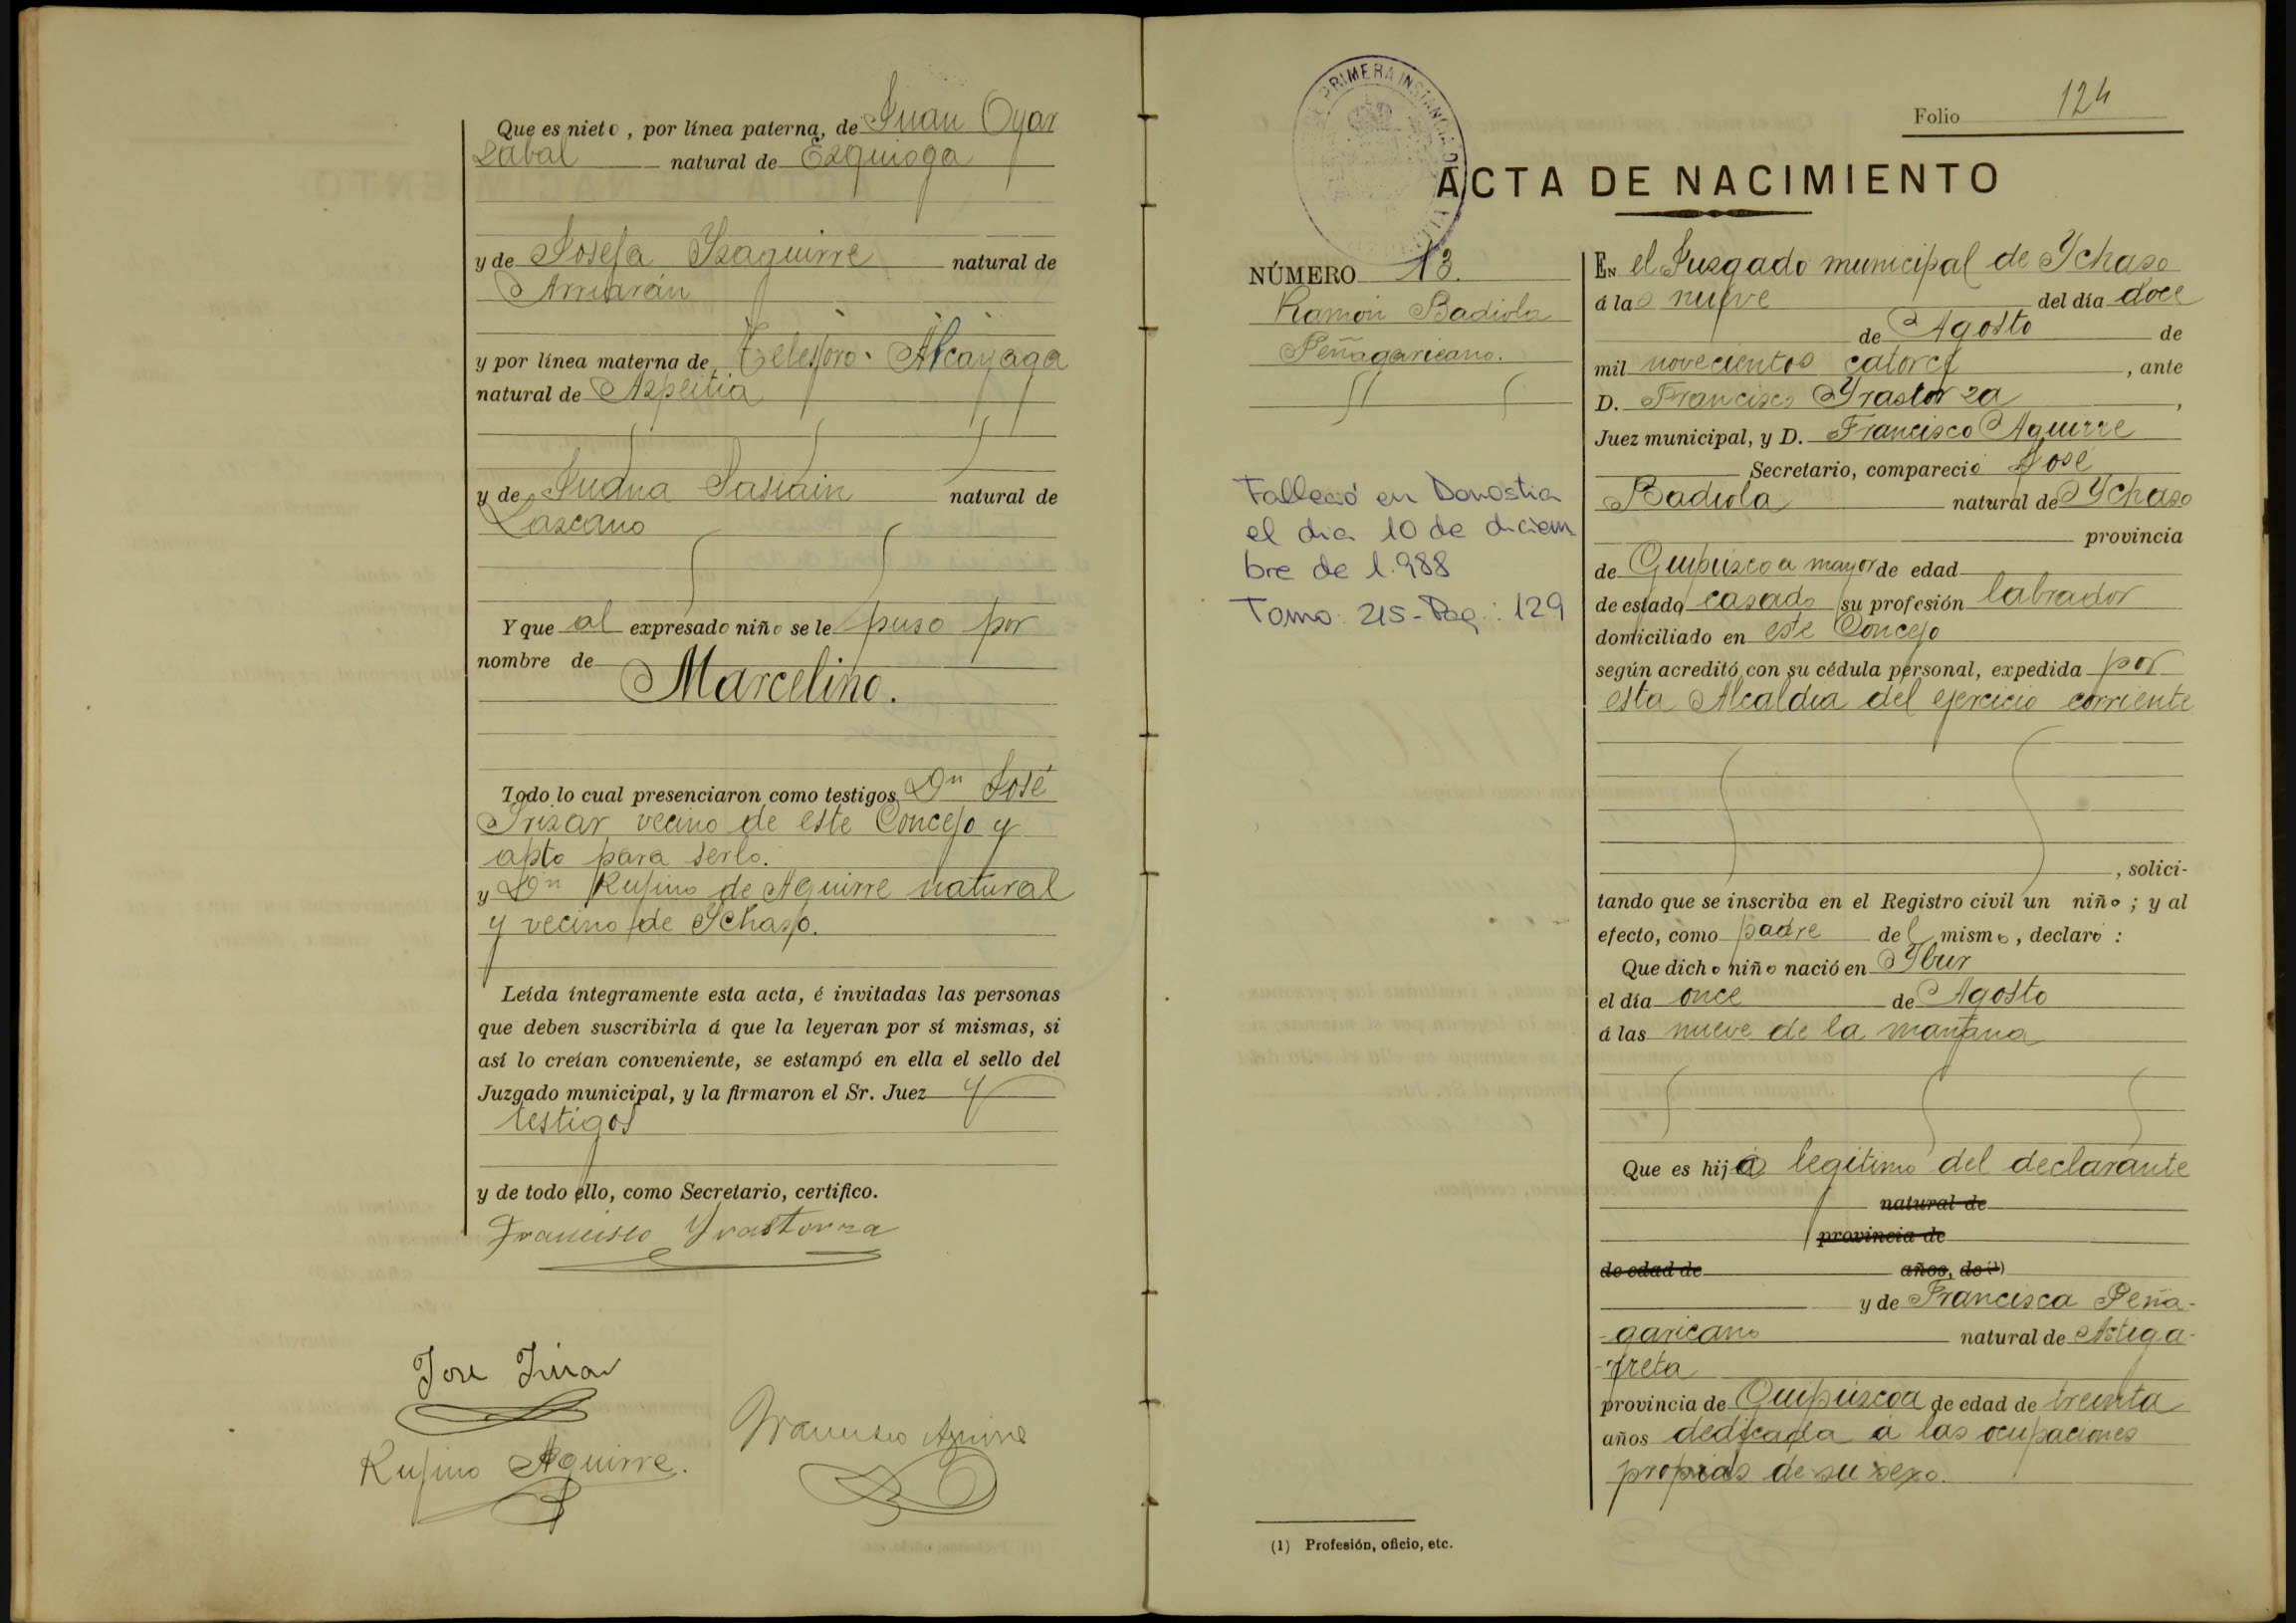 Que es nieto, por línea paterna, de Juan Oyar
zabal natural de Ezquioga
y de Josefa Yzaguirre natural de
Arriarán
y por línea materna de Telesforo Alcayaga
natural de Azpeitia
y de Juana Sasiain natural de
Lazcano
Y que al expresado niño se le puso por
nombre de
Marcelino.
Todo lo cual presenciaron como testigos Dn José
Irizar vecino de este Concejo y
apto para serlo.
y Dn Rufino de Aguirre natural
y vecino de Ichaso.
Leída íntegramente esta acta, é invitadas las personas
que deben suscribirla á que la leyeran por sí mismas, si
así lo creían conveniente, se estampó en ella el sello del
Juzgado municipal, y la firmaron el Sr. Juez y
testigos
y de todo ello, como Secretario, certifico.
Francisco Yrastorza
José Irizar
Francisco Aguirre
Rufino Aguirre.
Folio 124
PRIMERA INSTANCIA
ACTA DE NACIMIENTO
NÚMERO 13.
Ramón Badiola
Peñagaricano.
Falleció en Donostia
el dia 10 de diciem
bre de 1.988
Tomo: 215 - Pag.: 129
EN el Juzgado municipal de Ychaso
á las nueve del día doce
de Agosto de
mil novecientos catorce, ante
D. Francisco Yrastorza,
Juez municipal, y D. Francisco Aguirre
Secretario, compareció José
Badiola natural de Ychaso
provincia
de Guipúzcoa mayor de edad
de estado casado su profesión labrador
domiciliado en este Concejo
según acreditó con su cédula personal, expedida por
esta Alcaldía del ejercicio corriente
, solici-
tando que se inscriba en el Registro civil un niño; y al
efecto, como padre del mismo, declaró:
Que dicho niño nació en Ybur
el día once de Agosto
á las nueve de la mañana
Que es hijo legítimo del declarante
natural de
provincia de
de edad de años, de (1)
y de Francisca Peña-
-garicano natural de Astiga-
-rreta
provincia de Guipúzcoa de edad de treinta
años dedicada a las ocupaciones
propias de su sexo.
(1) Profesión, oficio, etc.